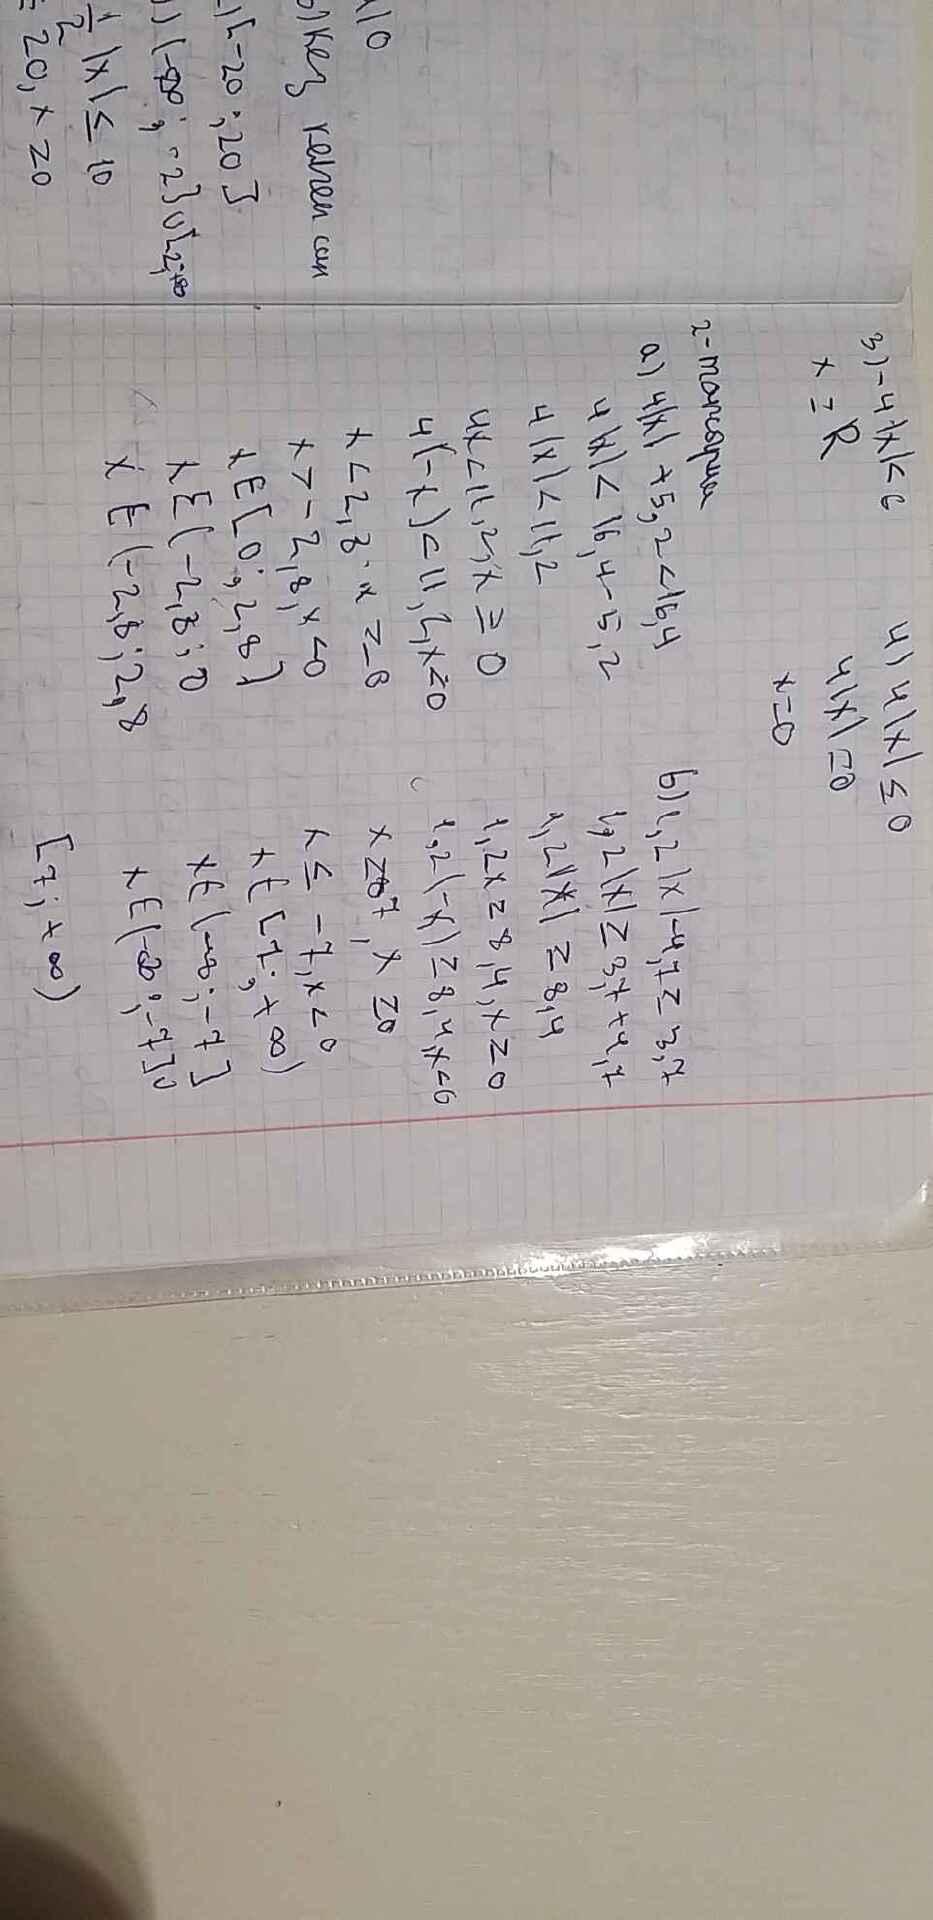 10
кез келген сан
[-20; 20]
(-∞; -2] ∪ [2; +∞
1/2 |x| ≤ 10
20, x ≥ 0
3) -4|x| < 6
x = R
4) 4|x| ≤ 0
4|x| = 0
x = 0
2-тапсырма
a) 4|x| + 5,2 < 16,4
4|x| < 16,4 - 5,2
4|x| < 11,2
4x < 11,2, x ≥ 0
4(-x) < 11,2, x ≤ 0
x < 2,8
x > -2,8, x < 0
x ∈ [0; 2,8)
x ∈ (-2,8; 0
x ∈ (-2,8; 2,8
b) 1,2|x| - 4,7 ≥ 3,7
1,2|x| ≥ 3,7 + 4,7
1,2|x| ≥ 8,4
1,2x ≥ 8,4, x ≥ 0
1,2(-x) ≥ 8,4, x < 0
x ≥ 7, x ≥ 0
x ≤ -7, x < 0
x ∈ [7; +∞)
x ∈ (-∞; -7]
x ∈ (-∞; -7] ∪
[7; +∞)